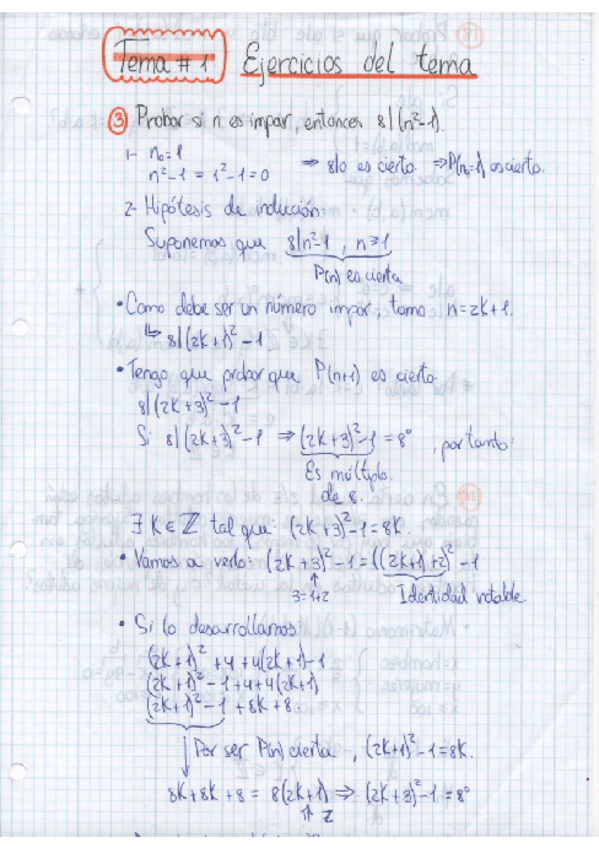 Tema #1 Ejercicios del tema
③ Probar si n es impar, entonces 8|(n²-1).
1- n₀=1
n²-1 = 1²-1=0 ⇒ 8|0 es cierto. ⇒P(n₀=1) es cierto.
2- Hipótesis de indución:
Suponemos que 8|n²-1, n≥1
P(n) es cierta
• Como debe ser un número impar, tomo n=2K+1.
↳ 8|(2K+1)²-1
• Tengo que probar que P(n+1) es cierto.
8|(2K+3)²-1
Si 8|(2K+3)²-1 ⇒ (2K+3)²-1 = 8°, por tanto:
Es múltiplo
de 8.
∃ K∈ℤ tal que: (2K+3)²-1=8K.
• Vamos a verlo: (2K+3)²-1=((2K+1)+2)²-1
3=1+2 Identidad notable.
• Si lo desarrollamos:
(2K+1)²+4+4(2K+1)-1
(2K+1)²-1+4+4(2K+1)
(2K+1)²-1+8K+8
Por ser P(n) cierta, (2K+1)²-1=8K.
8K+8K+8 = 8(2K+1) ⇒ (2K+3)²-1=8°
ℤ